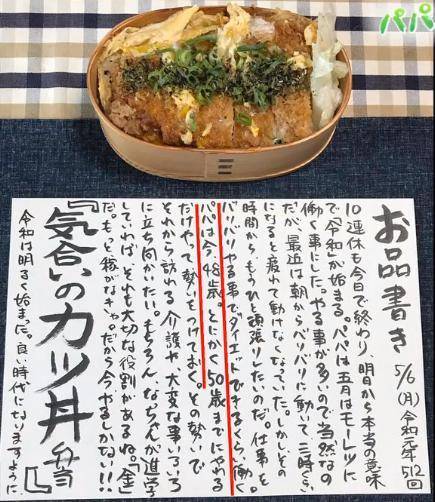 パパ
お品書き
5/6(月)令和元年512回
10連休も今日で終わり、明日から本当の意味
で「令和」が始まる。パパは五月はモーレツに
働く事にした。やる事が多いので当然なの
だが、最近は朝からバリバリに動いて、三時ぐらい
になると疲れて動けなくなっていた。しかしその
時間から、もうひと頑張りしたいのだ。仕事を
バリバリやる事でダイエットできるくらい働く。
パパは今、48歳。とにかく50歳までにやれる
だけやって勢いをつけておく。その勢いで
それから訪れる介護や、大変な事いろいろ
に立ち向かいたい。もちろん、なちゃんが進学
していれば、それも大切な役割があるね。「金」
だ。もっと稼がなきゃ。だから今やるしかない!!
『気合いのカツ丼弁当』
令和は明るく始また。良い時代になりますように